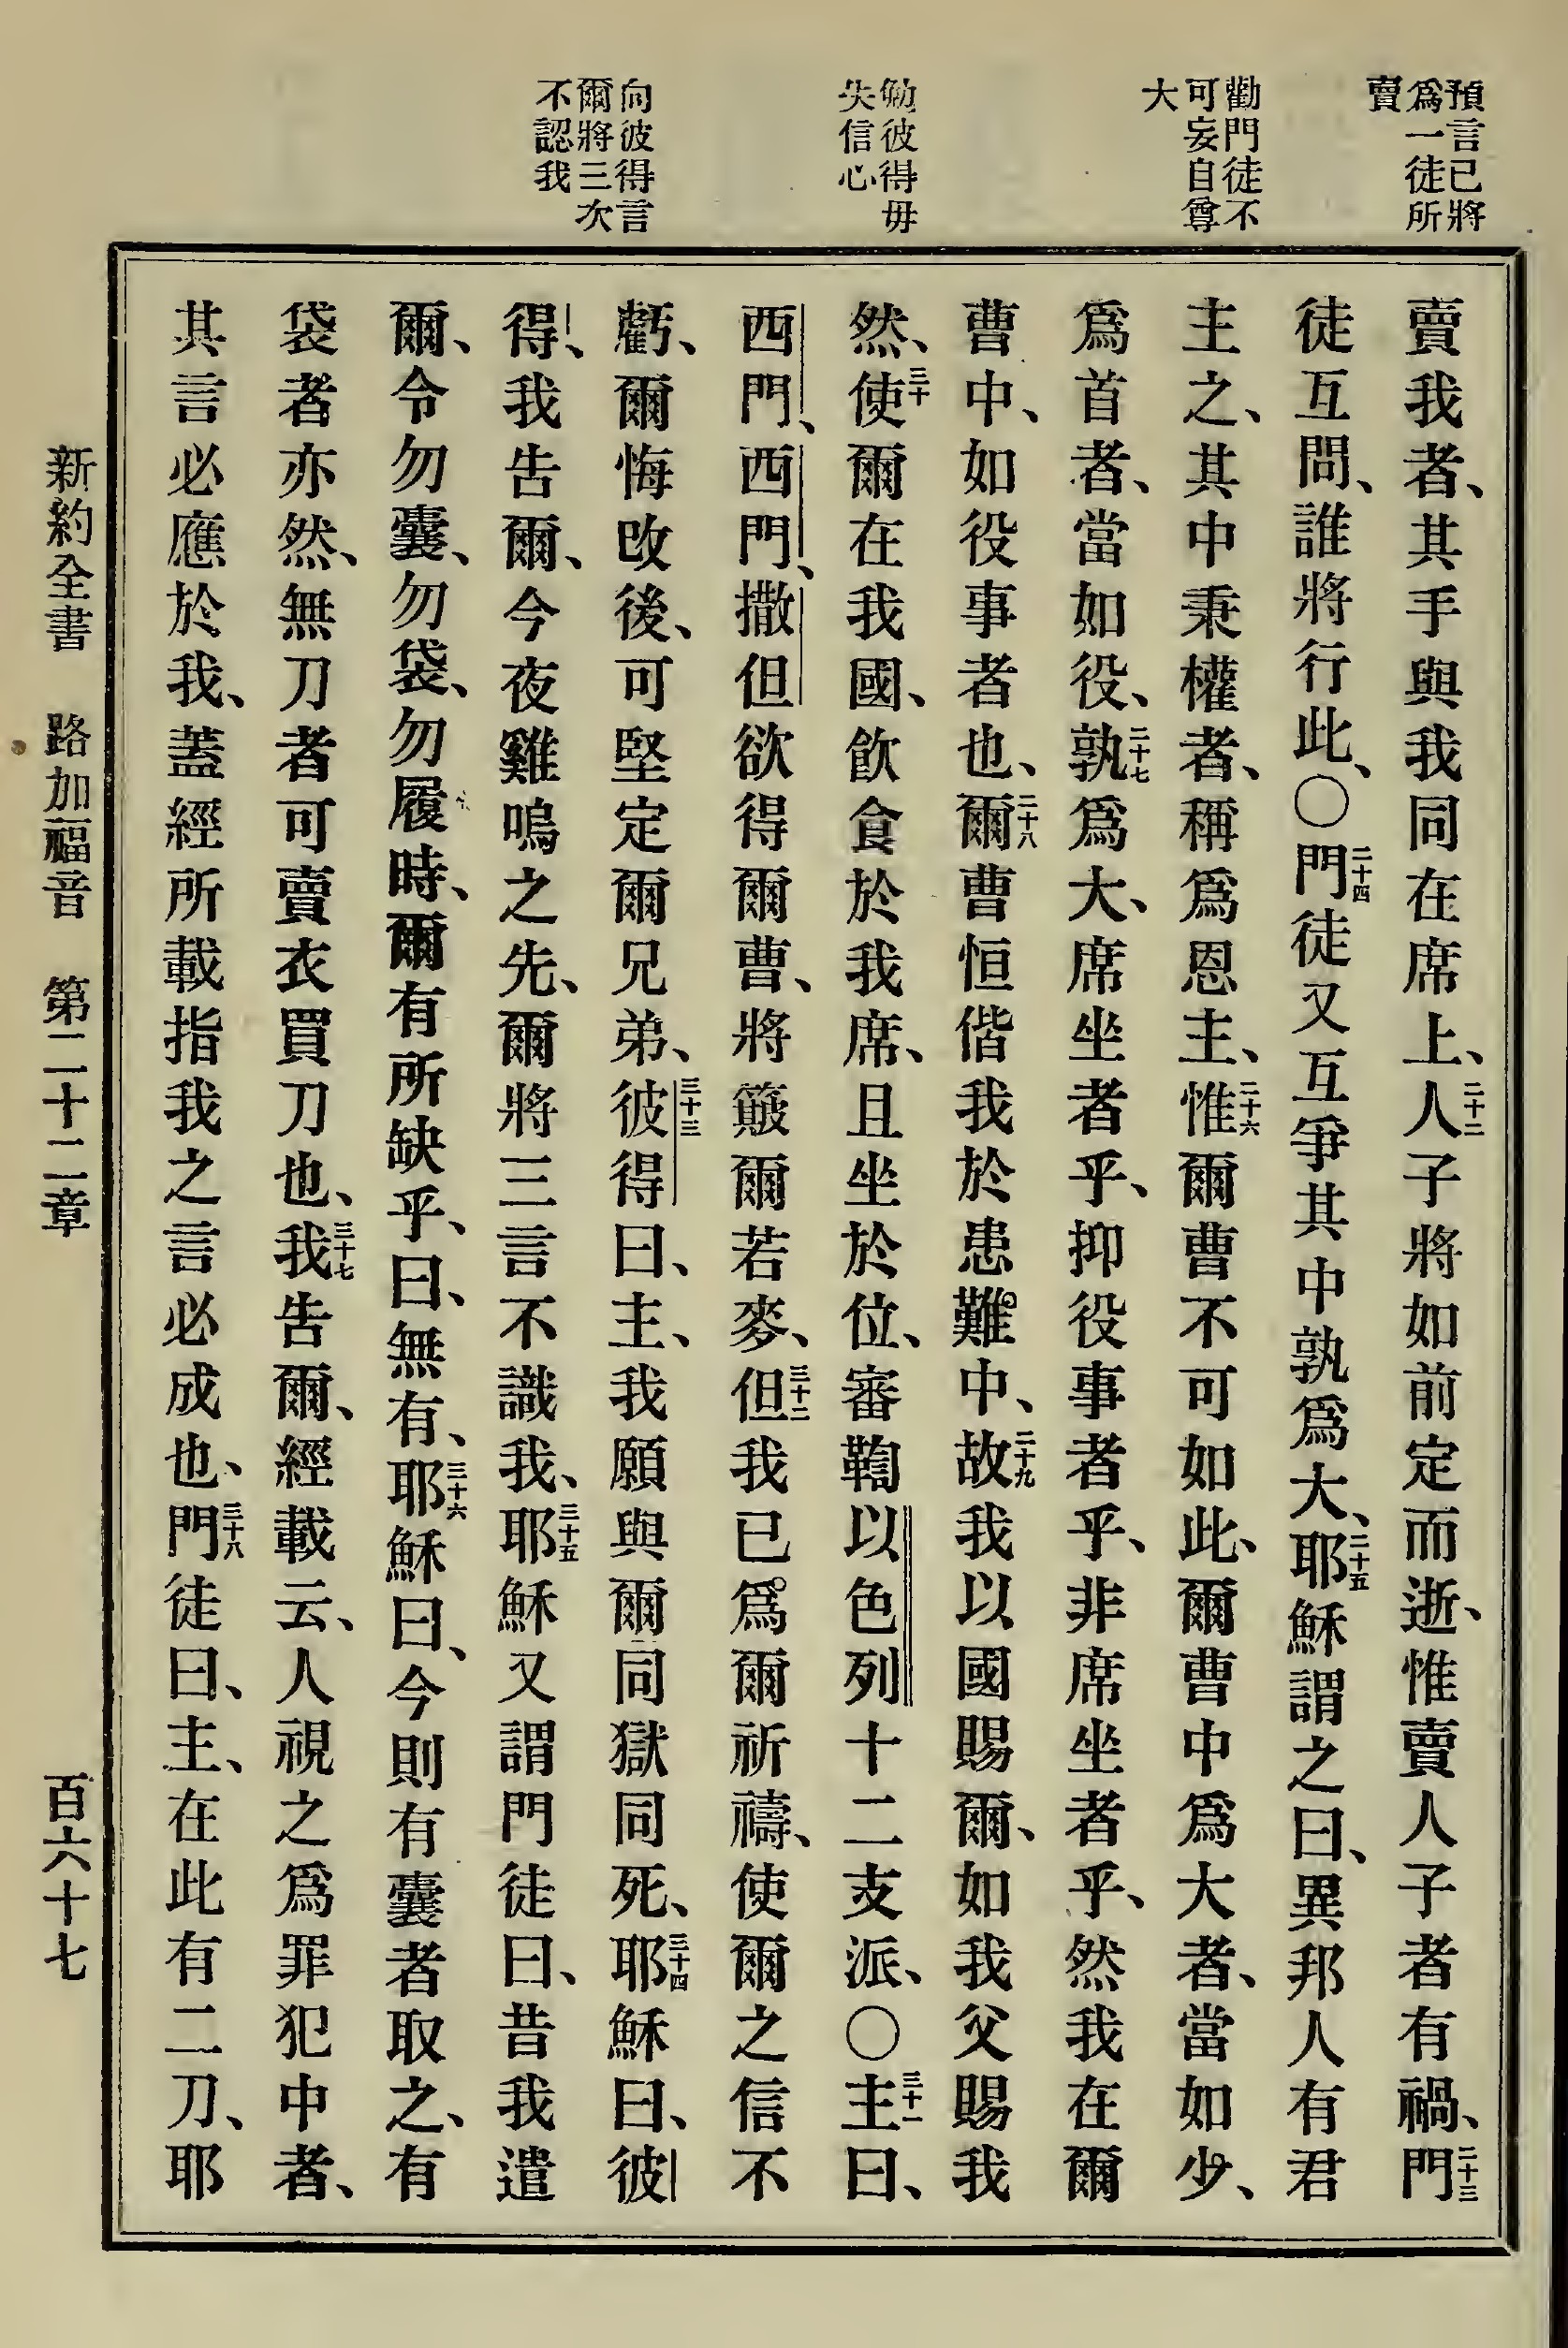 預言已將
爲一徒所
賣
勸門徒不
可妄自尊
大
勉彼得毋
失信心
向彼得言
爾將三次
不認我
賣我者、其手與我同在席上、二十二人子將如前定而逝、惟賣人子者有禍、二十三門
徒互問、誰將行此、〇二十四門徒又互爭其中孰爲大、二十五耶穌謂之曰、異邦人有君
主之、其中秉權者、稱爲恩主、二十六惟爾曹不可如此、爾曹中爲大者、當如少、
爲首者、當如役、二十七孰爲大、席坐者乎、抑役事者乎、非席坐者乎、然我在爾
曹中、如役事者也、二十八爾曹恒偕我於患難中、二十九故我以國賜爾、如我父賜我
然、三十使爾在我國、飲食於我席、且坐於位、審鞫以色列十二支派、〇三十一主曰、
西門、西門、撒但欲得爾曹、將簸爾若麥、三十二但我已爲爾祈禱、使爾之信不
虧、爾悔改後、可堅定爾兄弟、三十三彼得曰、主、我願與爾同獄同死、三十四耶穌曰、彼
得、我告爾、今夜雞鳴之先、爾將三言不識我、三十五耶穌又謂門徒曰、昔我遣
爾、令勿囊、勿袋、勿履時、爾有所缺乎、曰、無有、三十六耶穌曰、今則有囊者取之、有
袋者亦然、無刀者可賣衣買刀也、三十七我告爾、經載云、人視之爲罪犯中者、
其言必應於我、蓋經所載指我之言必成也、三十八門徒曰、主、在此有二刀、耶
新約全書 路加福音 第二十二章 百六十七